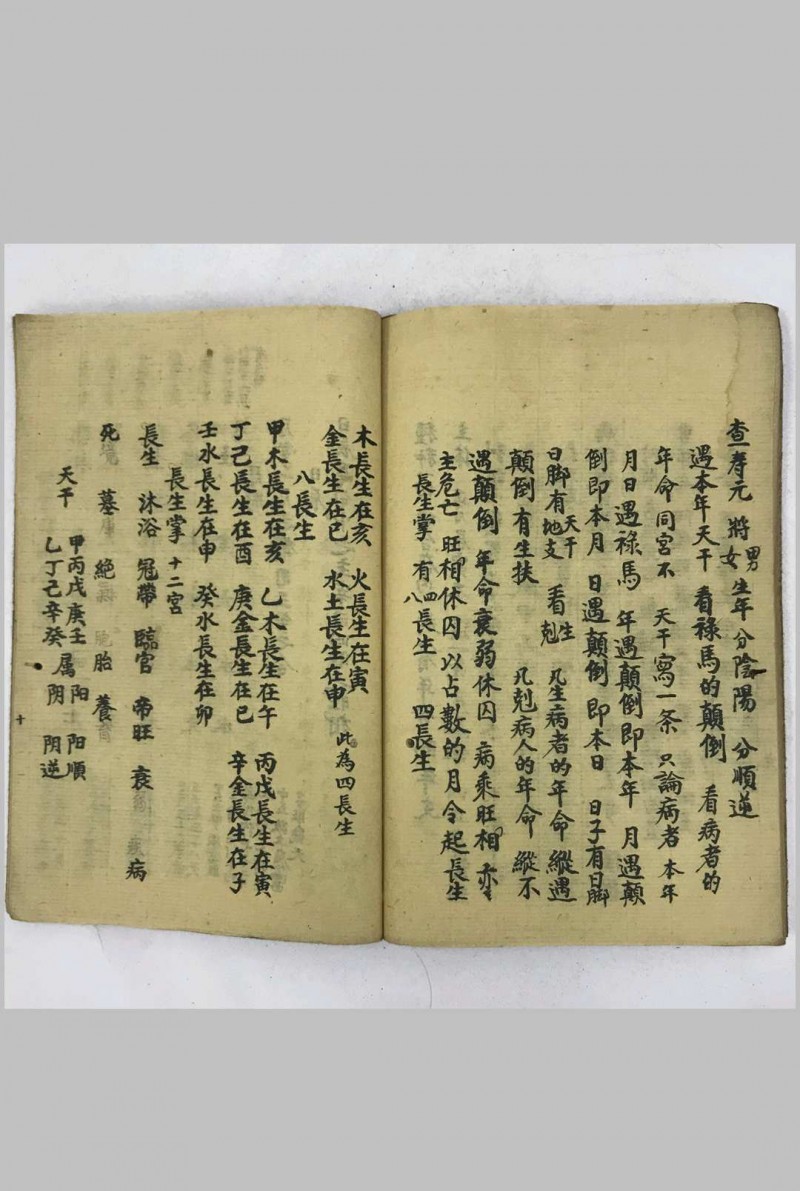 查寿元 將男女生年分陰陽 分順逆
遇本年天干 看祿馬的顛倒 看病者的
年命同宮不 天干寫一条 只論病者本年
月日遇祿馬 年遇顛倒即本年 月遇顛
倒即本月 日遇顛倒 即本日 日子有日脚
日脚有天干地支 看生剋 凡生病者的年命 縱遇
顛倒有生扶 凡剋病人的年命 縱不
遇顛倒 年命衰弱休囚 病乘旺相 亦
主危亡 旺相休囚以占數的月令起長生
長生掌 有四八長生 四長生
木長生在亥 火長生在寅
金長生在巳 水土長生在申 此為四長生
八長生
甲木長生在亥 乙木長生在午 丙戊長生在寅
丁己長生在酉 庚金長生在巳 辛金長生在子
壬水長生在申 癸水長生在卯
長生掌 十二宮
長生 沐浴 冠帶 臨官 帝旺 衰 病
死 墓 絕 胎 養
天干 甲丙戊庚壬 属阳 阳順
乙丁己辛癸 属阴 阴逆
十